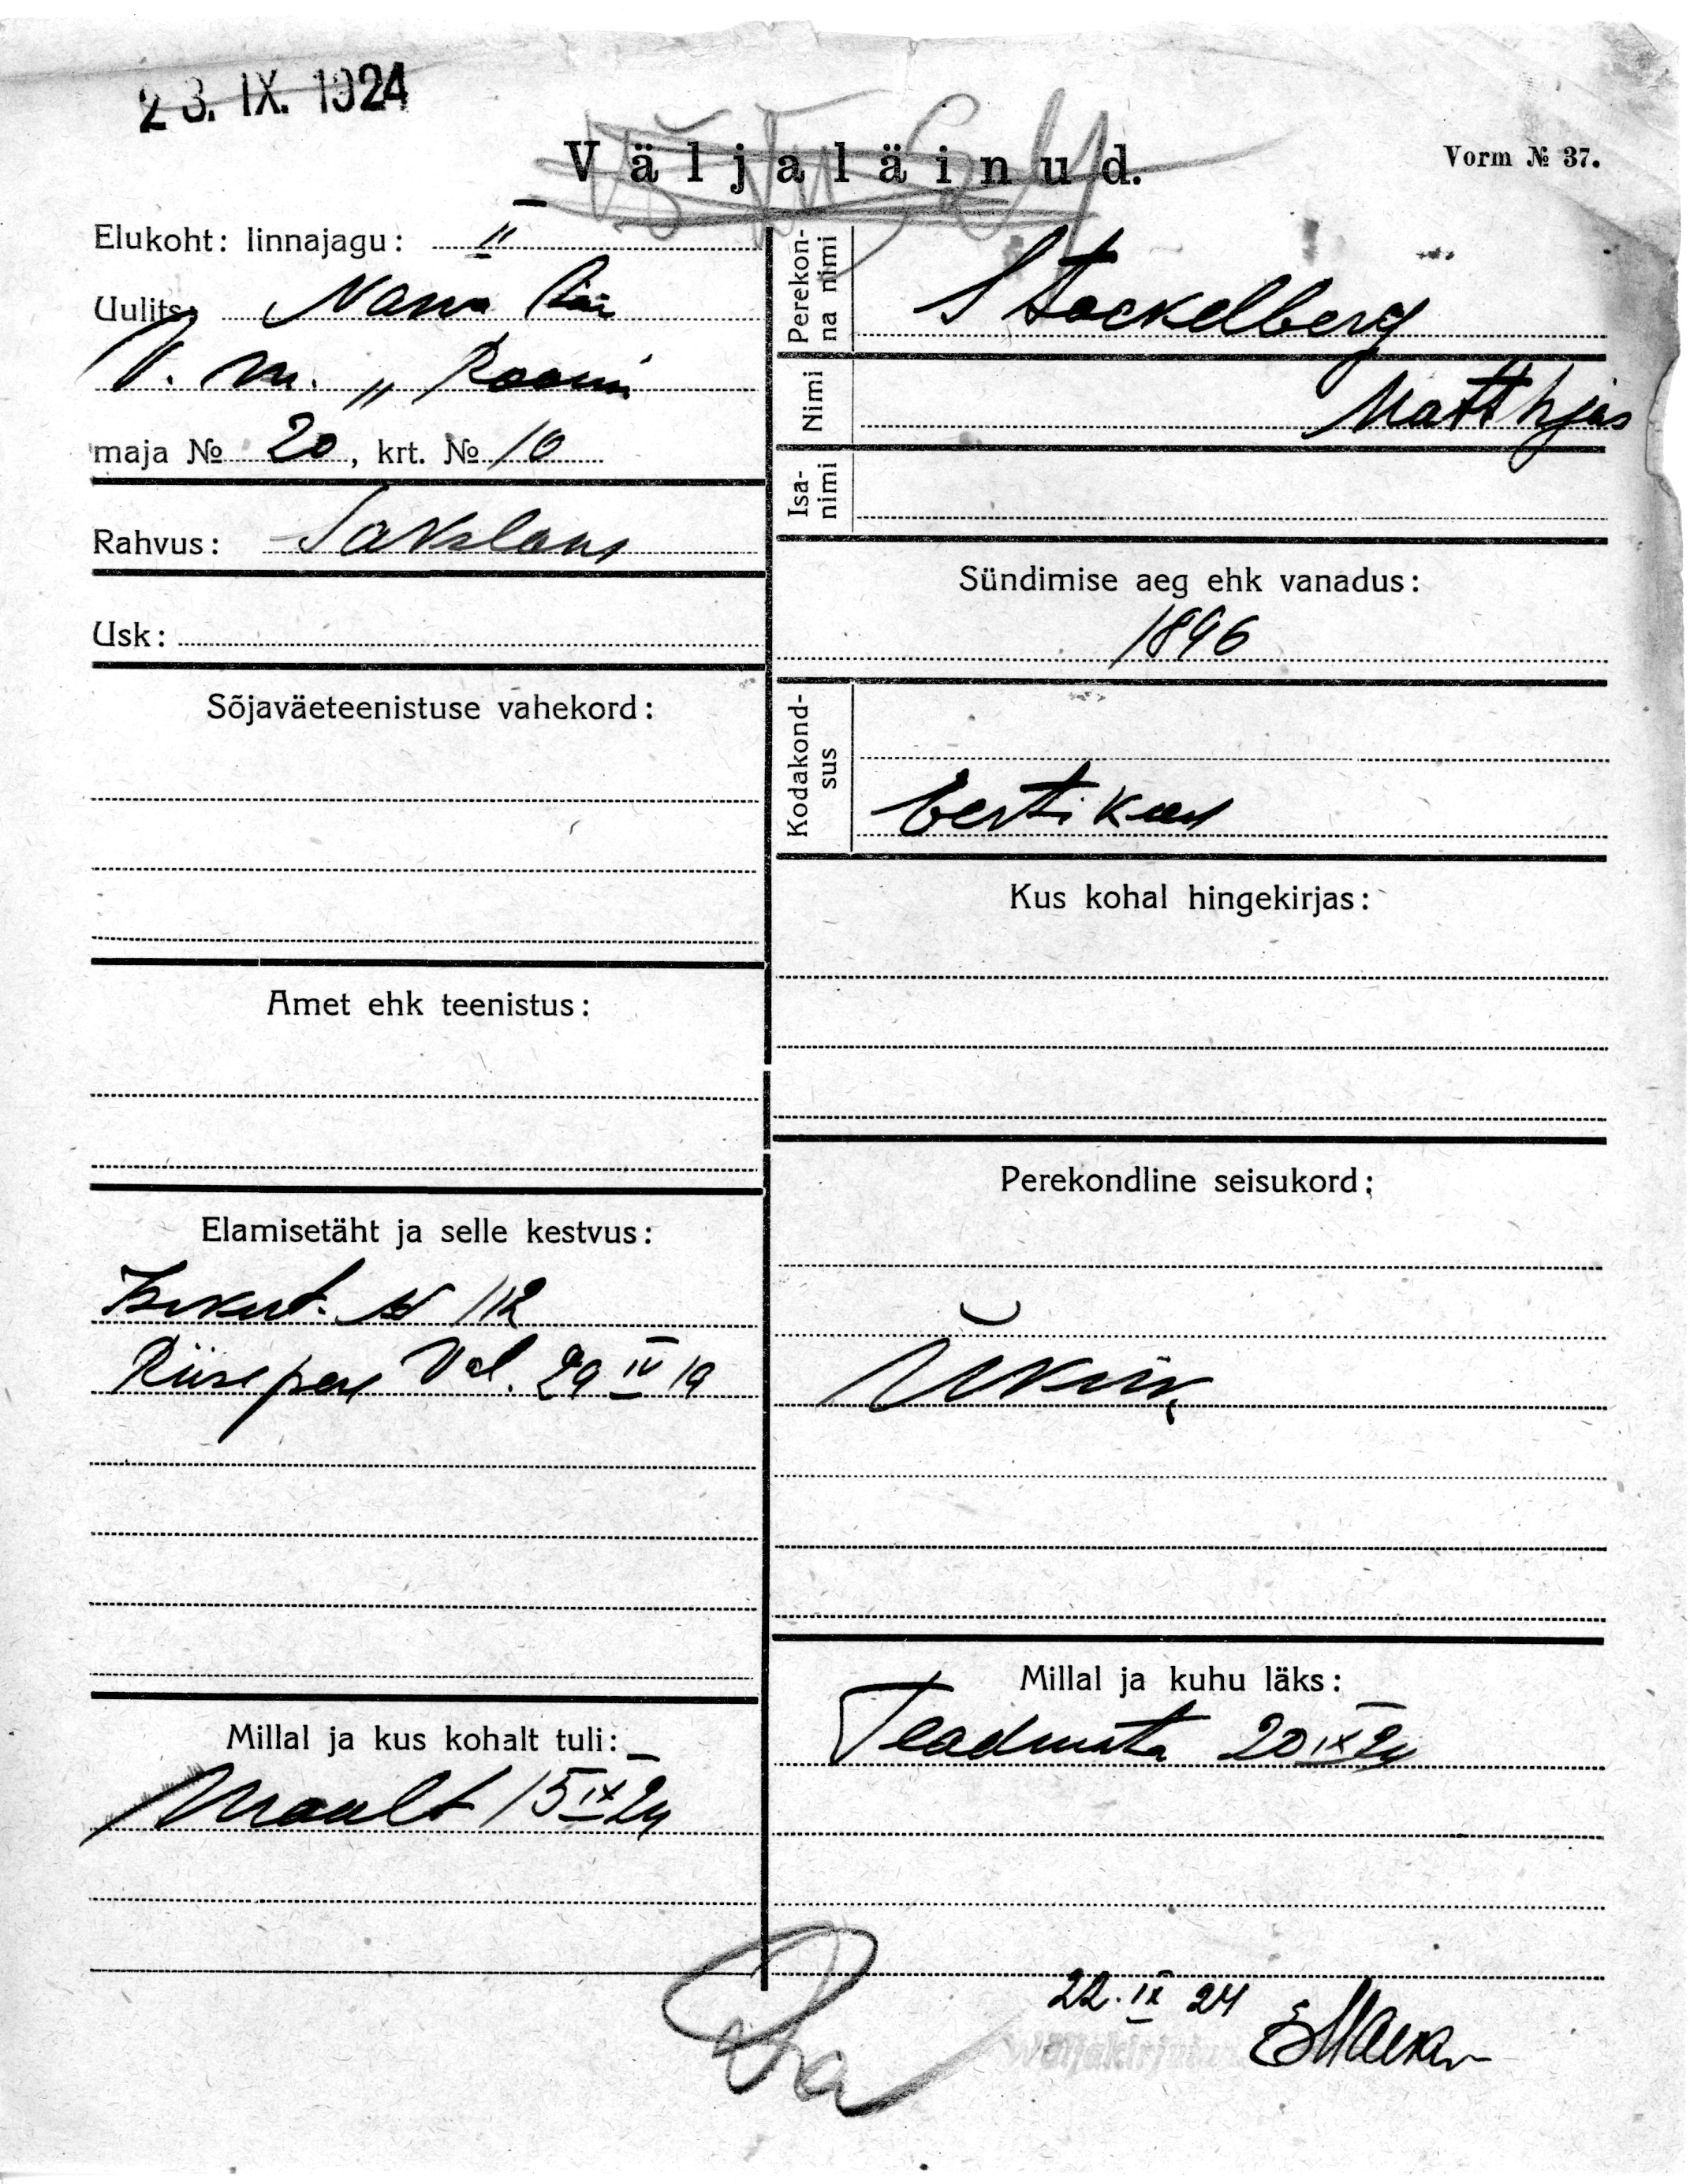 23. IX. 1924
Väljaläinud.
Vorm № 37.
Elukoht: linnajagu: II
Uulits: Narva
V. m. „ Rooma
maja № 20, krt. № 10
Rahvus: Sakslane
Usk:
Sõjaväeteenistuse vahekord:
Amet ehk teenistus:
Elamisetäht ja selle kestvus:
Isikut. № 112
Riisipere Val. 29 IV 19
Millal ja kus kohalt tuli:
Maalt 15 IX 24
Perekon-
na nimi
Stackelberg
Nimi
Matthias
Isa-
nimi
Sündimise aeg ehk vanadus:
1896
Kodakond-
sus
Eesti kod
Kus kohal hingekirjas:
Perekondline seisukord:
Üksik
Millal ja kuhu läks:
Teadmata 20 IX 24
22. IX 24
Väljakirjutatud